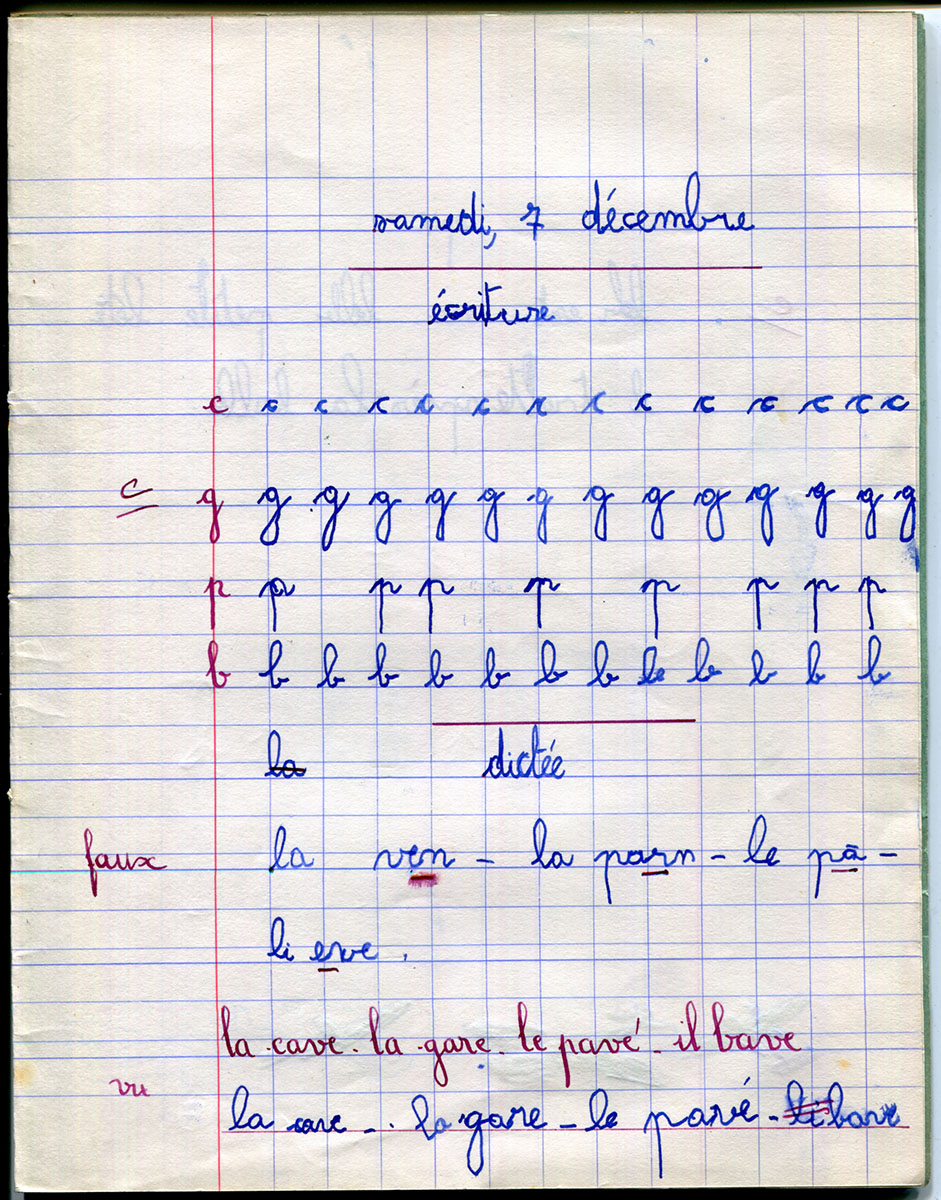 samedi, 7 décembre
écriture
c c c c c c c c c c c c c c
C g g g g g g g g g g g g g g
p p p p p p p p p
b b b b b b b b b b b b b
la dictée
faux la ven - la parn - le pa -
li eve.
la cave. la gare. le pavé - il bave
vu la cave - . la gare - le pavé - li bave